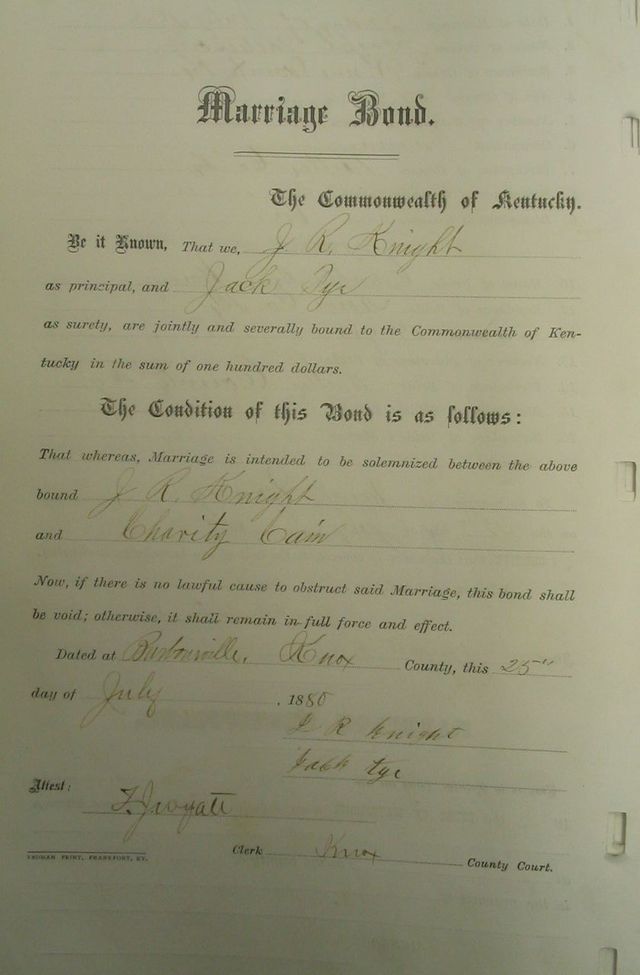 Marriage Bond.
The Commonwealth of Kentucky.
Be it Known, That we, J R. Knight
as principal, and Jack Tye
as surety, are jointly and severally bound to the Commonwealth of Ken-
tucky in the sum of one hundred dollars.
The Condition of this Bond is as follows:
That whereas, Marriage is intended to be solemnized between the above
bound J R. Knight
and Charity Cain
Now, if there is no lawful cause to obstruct said Marriage, this bond shall
be void; otherwise, it shall remain in full force and effect.
Dated at Barbourville, Knox County, this 25"
day of July, 1880
J R Knight
Jack Tye
Attest:
Clerk Knox County Court.
YEOMAN PRINT, FRANKFORT, KY.